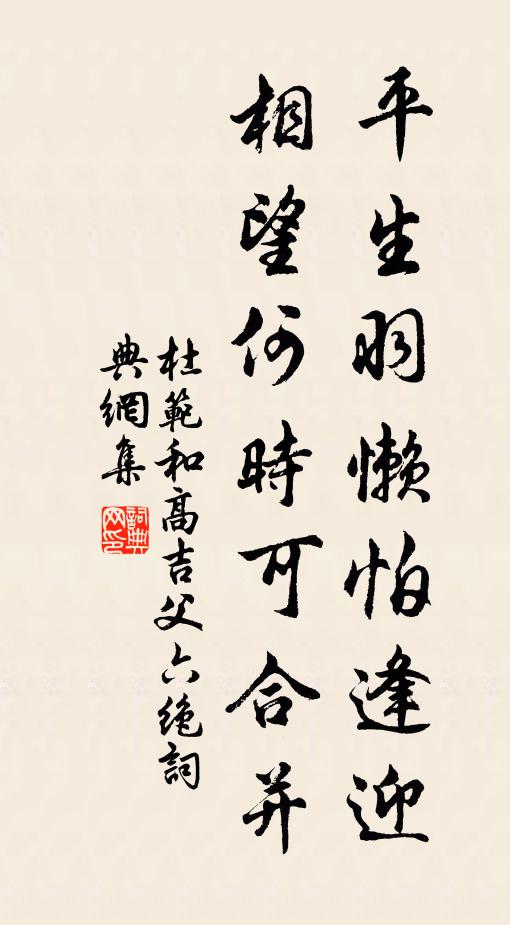 平生羽懶怕逢迎
相望何時可合并
杜範和高吉父六絶詞
典網集
詞典网印